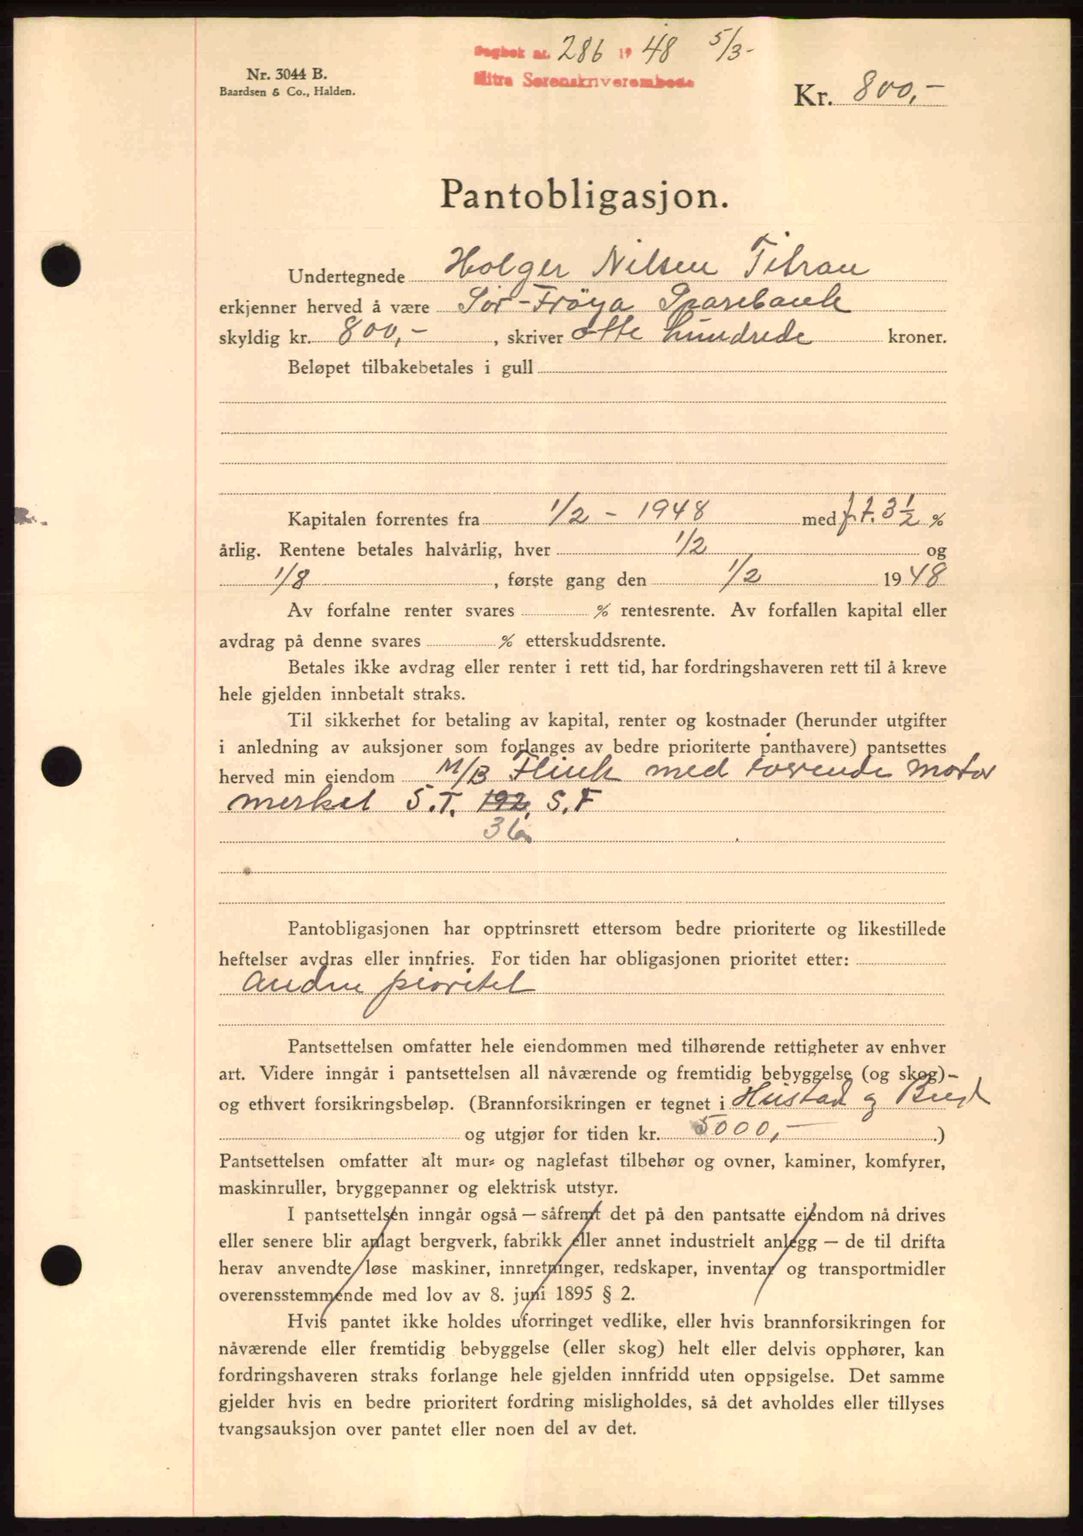 Dagbok nr. 286 19 48 5/3-
Hitra Sorenskriverembede
Nr. 3044 B.
Baardsen & Co., Halden.
Kr. 800,-
Pantobligasjon.
Undertegnede Holger Nilsen Titran
erkjenner herved å være Sør-Frøya Sparebank
skyldig kr. 800,- , skriver otte hundrede kroner.
Beløpet tilbakebetales i gull
Kapitalen forrentes fra 1/2 - 1948 med f.t. 3 1/2 %
årlig. Rentene betales halvårlig, hver 1/2 og
1/8 , første gang den 1/2 1948
Av forfalne renter svares % rentesrente. Av forfallen kapital eller
avdrag på denne svares % etterskuddsrente.
Betales ikke avdrag eller renter i rett tid, har fordringshaveren rett til å kreve
hele gjelden innbetalt straks.
Til sikkerhet for betaling av kapital, renter og kostnader (herunder utgifter
i anledning av auksjoner som forlanges av bedre prioriterte panthavere) pantsettes
herved min eiendom M/B Flink med iværende motor
merket S.T. 192 S.F
36
Pantobligasjonen har opptrinsrett ettersom bedre prioriterte og likestillede
heftelser avdras eller innfries. For tiden har obligasjonen prioritet etter:
Anden pioritet
Pantsettelsen omfatter hele eiendommen med tilhørende rettigheter av enhver
art. Videre inngår i pantsettelsen all nåværende og fremtidig bebyggelse (og skog)-
og ethvert forsikringsbeløp. (Brannforsikringen er tegnet i Hustad og Bud
og utgjør for tiden kr. 5000,- .)
Pantsettelsen omfatter alt mur- og naglefast tilbehør og ovner, kaminer, komfyrer,
maskinruller, bryggepanner og elektrisk utstyr.
I pantsettelsen inngår også — såfremt det på den pantsatte eiendom nå drives
eller senere blir anlagt bergverk, fabrikk eller annet industrielt anlegg — de til drifta
herav anvendte løse maskiner, innretninger, redskaper, inventar og transportmidler
overensstemmende med lov av 8. juni 1895 § 2.
Hvis pantet ikke holdes uforringet vedlike, eller hvis brannforsikringen for
nåværende eller fremtidig bebyggelse (eller skog) helt eller delvis opphører, kan
fordringshaveren straks forlange hele gjelden innfridd uten oppsigelse. Det samme
gjelder hvis en bedre prioritert fordring misligholdes, så det avholdes eller tillyses
tvangsauksjon over pantet eller noen del av det.